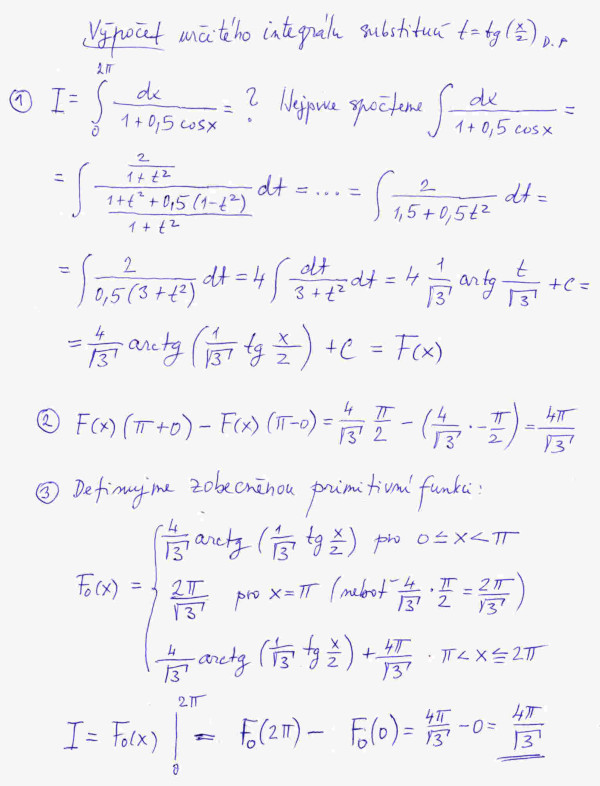 Výpočet určitého integrálu substitucí t = tg(x/2) D.P
① I = ∫₀^{2π} dx/(1+0,5 cosx) = ? Nejprve spočteme ∫ dx/(1+0,5 cosx) =
= ∫ (2/(1+t²)) / ((1+t²+0,5(1-t²))/(1+t²)) dt = ... = ∫ 2/(1,5+0,5t²) dt =
= ∫ 2/(0,5(3+t²)) dt = 4 ∫ dt/(3+t²) dt = 4 1/√3 artg t/√3 + C =
= 4/√3 arctg (1/√3 tg x/2) + C = F(x)
② F(x) (π+0) - F(x) (π-0) = 4/√3 π/2 - (4/√3 · -π/2) = 4π/√3
③ Definujme zobecněnou primitivní funkci:
F₀(x) = { 4/√3 arctg (1/√3 tg x/2) pro 0 ≤ x < π
2π/√3 pro x = π (neboť 4/√3 · π/2 = 2π/√3)
4/√3 arctg (1/√3 tg x/2) + 4π/√3 · π < x ≤ 2π
I = F₀(x) |₀^{2π} = F₀(2π) - F₀(0) = 4π/√3 - 0 = 4π/√3